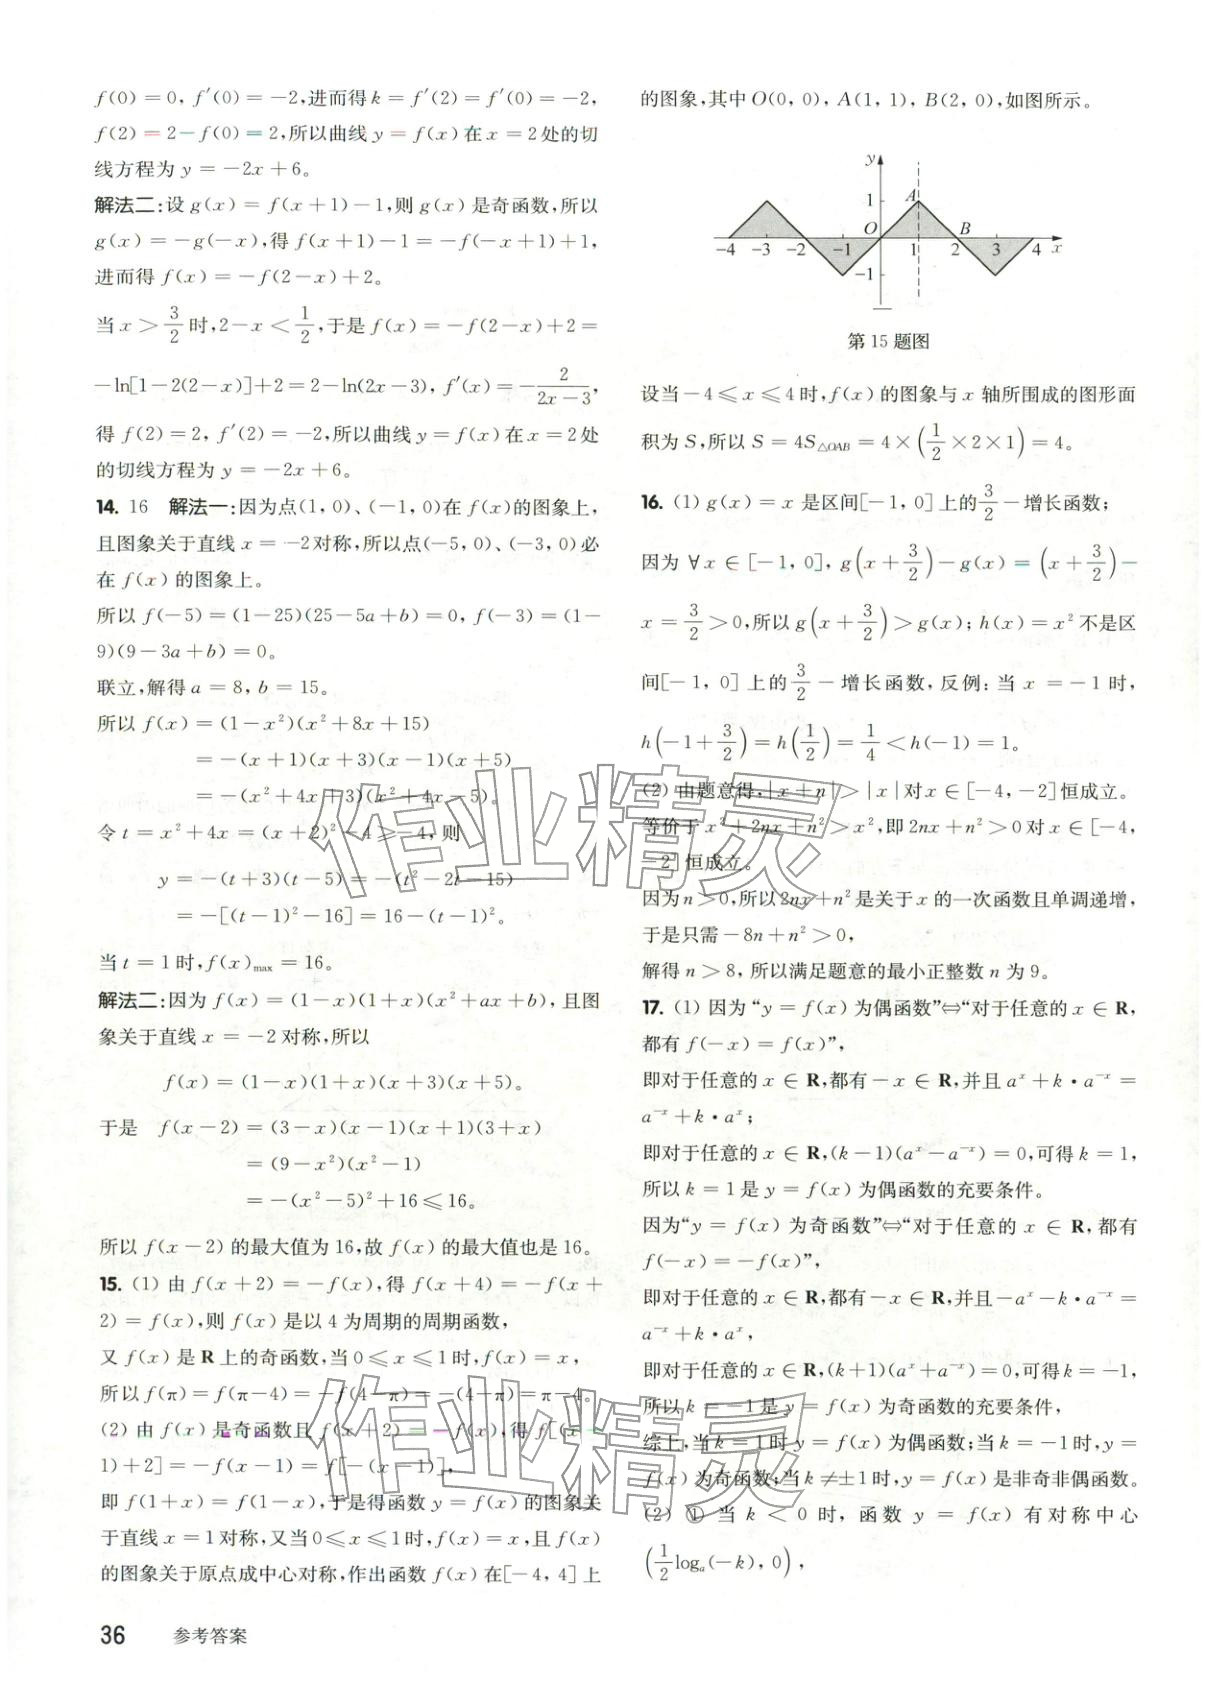 f(0)=0, f′(0)=-2,进而得k=f′(2)=f′(0)=-2,
f(2)=2-f(0)=2,所以曲线 y=f(x)在 x=2处的切
线方程为 y=-2x+6。
解法二:设 g(x)=f(x+1)-1,则 g(x)是奇函数,所以
g(x)=-g(-x),得 f(x+1)-1=-f(-x+1)+1,
进而得 f(x)=-f(2-x)+2。
当 x>3/2 时,2-x<1/2,于是 f(x)=-f(2-x)+2=
-ln[1-2(2-x)]+2=2-ln(2x-3), f′(x)=-2/(2x-3),
得 f(2)=2, f′(2)=-2,所以曲线 y=f(x)在 x=2处
的切线方程为 y=-2x+6。
14. 16 解法一:因为点(1, 0)、(-1, 0)在 f(x)的图象上,
且图象关于直线 x=-2对称,所以点(-5, 0)、(-3, 0)必
在 f(x)的图象上。
所以 f(-5)=(1-25)(25-5a+b)=0, f(-3)=(1-
9)(9-3a+b)=0。
联立,解得 a=8, b=15。
所以 f(x)=(1-x²)(x²+8x+15)
=-(x+1)(x+3)(x-1)(x+5)
=-(x²+4x+3)(x²+4x-5)。
令 t=x²+4x=(x+2)²-4≥-4, 则
y=-(t+3)(t-5)=-(t²-2t-15)
=-[(t-1)²-16]=16-(t-1)²。
当 t=1时, f(x)max=16。
解法二:因为 f(x)=(1-x)(1+x)(x²+ax+b),且图
象关于直线 x=-2对称,所以
f(x)=(1-x)(1+x)(x+3)(x+5)。
于是 f(x-2)=(3-x)(x-1)(x+1)(3+x)
=(9-x²)(x²-1)
=-(x²-5)²+16≤16。
所以 f(x-2)的最大值为16,故 f(x)的最大值也是16。
15. (1) 由 f(x+2)=-f(x),得 f(x+4)=-f(x+
2)=f(x),则 f(x)是以4为周期的周期函数,
又 f(x)是 R 上的奇函数,当0≤x≤1时, f(x)=x,
所以 f(π)=f(π-4)=-f(4-π)=-(4-π)=π-4。
(2) 由 f(x)是奇函数且 f(x+2)=-f(x),得 f[(x-
1)+2]=-f(x-1)=f[-(x-1)],
即 f(1+x)=f(1-x),于是得函数 y=f(x)的图象关
于直线 x=1对称,又当0≤x≤1时, f(x)=x,且 f(x)
的图象关于原点成中心对称,作出函数 f(x)在[-4, 4]上
36 参考答案
的图象,其中 O(0, 0), A(1, 1), B(2, 0),如图所示。
y
1
A
O
B
-4 -3 -2 -1 1 2 3 4 x
-1
第15题图
设当-4≤x≤4时, f(x)的图象与 x 轴所围成的图形面
积为 S,所以 S=4S△OAB=4×(1/2×2×1)=4。
16. (1) g(x)=x 是区间[-1, 0]上的3/2-增长函数;
因为 ∀x∈[-1, 0], g(x+3/2)-g(x)=(x+3/2)-
x=3/2>0,所以 g(x+3/2)>g(x); h(x)=x² 不是区
间[-1, 0]上的3/2-增长函数,反例:当 x=-1时,
h(-1+3/2)=h(1/2)=1/4<h(-1)=1。
(2) 由题意得, |x+n|>|x|对 x∈[-4, -2]恒成立。
等价于 x²+2nx+n²>x²,即 2nx+n²>0对 x∈[-4,
-2]恒成立。
因为 n>0,所以 2nx+n² 是关于 x 的一次函数且单调递增,
于是只需-8n+n²>0,
解得 n>8, 所以满足题意的最小正整数 n 为9。
17. (1) 因为“y=f(x)为偶函数”⇔“对于任意的 x∈R,
都有 f(-x)=f(x)”,
即对于任意的 x∈R,都有-x∈R,并且 aˣ+k•a⁻ˣ=
a⁻ˣ+k•aˣ;
即对于任意的 x∈R,(k-1)(aˣ-a⁻ˣ)=0,可得 k=1,
所以 k=1是 y=f(x)为偶函数的充要条件。
因为“y=f(x)为奇函数”⇔“对于任意的 x∈R,都有
f(-x)=-f(x)”,
即对于任意的 x∈R,都有-x∈R,并且-aˣ-k•a⁻ˣ=
a⁻ˣ+k•aˣ,
即对于任意的 x∈R,(k+1)(aˣ+a⁻ˣ)=0,可得 k=-1,
所以 k=-1是 y=f(x)为奇函数的充要条件,
综上,当 k=1时 y=f(x)为偶函数;当 k=-1时, y=
f(x)为奇函数;当 k≠±1时, y=f(x)是非奇非偶函数。
(2) ① 当 k<0时, 函数 y=f(x)有对称中心
(1/2 logₐ(-k), 0),
作业精灵
作业精灵